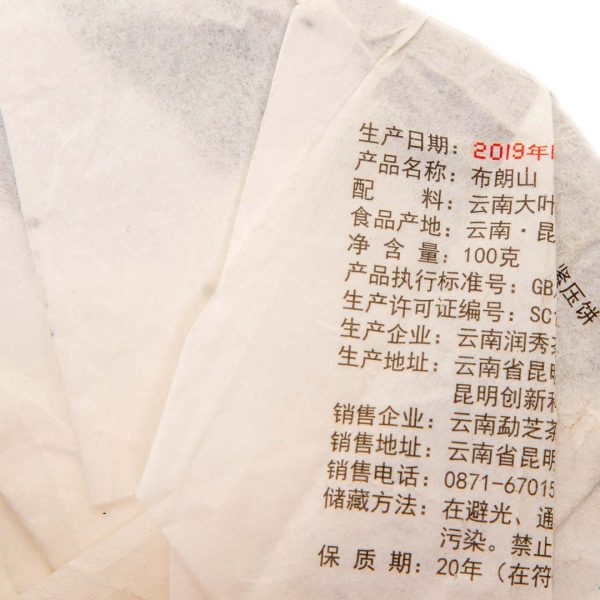 生产日期：2019年
产品名称：布朗山
配 料：云南大叶
食品产地：云南·昆
净 含 量：100克
产品执行标准号：GB
生产许可证编号：SC
生产企业：云南润秀茶
生产地址：云南省昆明
昆明创新科
销售企业：云南勐芝茶
销售地址：云南省昆明
销售电话：0871-67015
储藏方法：在避光、通
污染。禁止
保 质 期：20年（在符
紧压饼